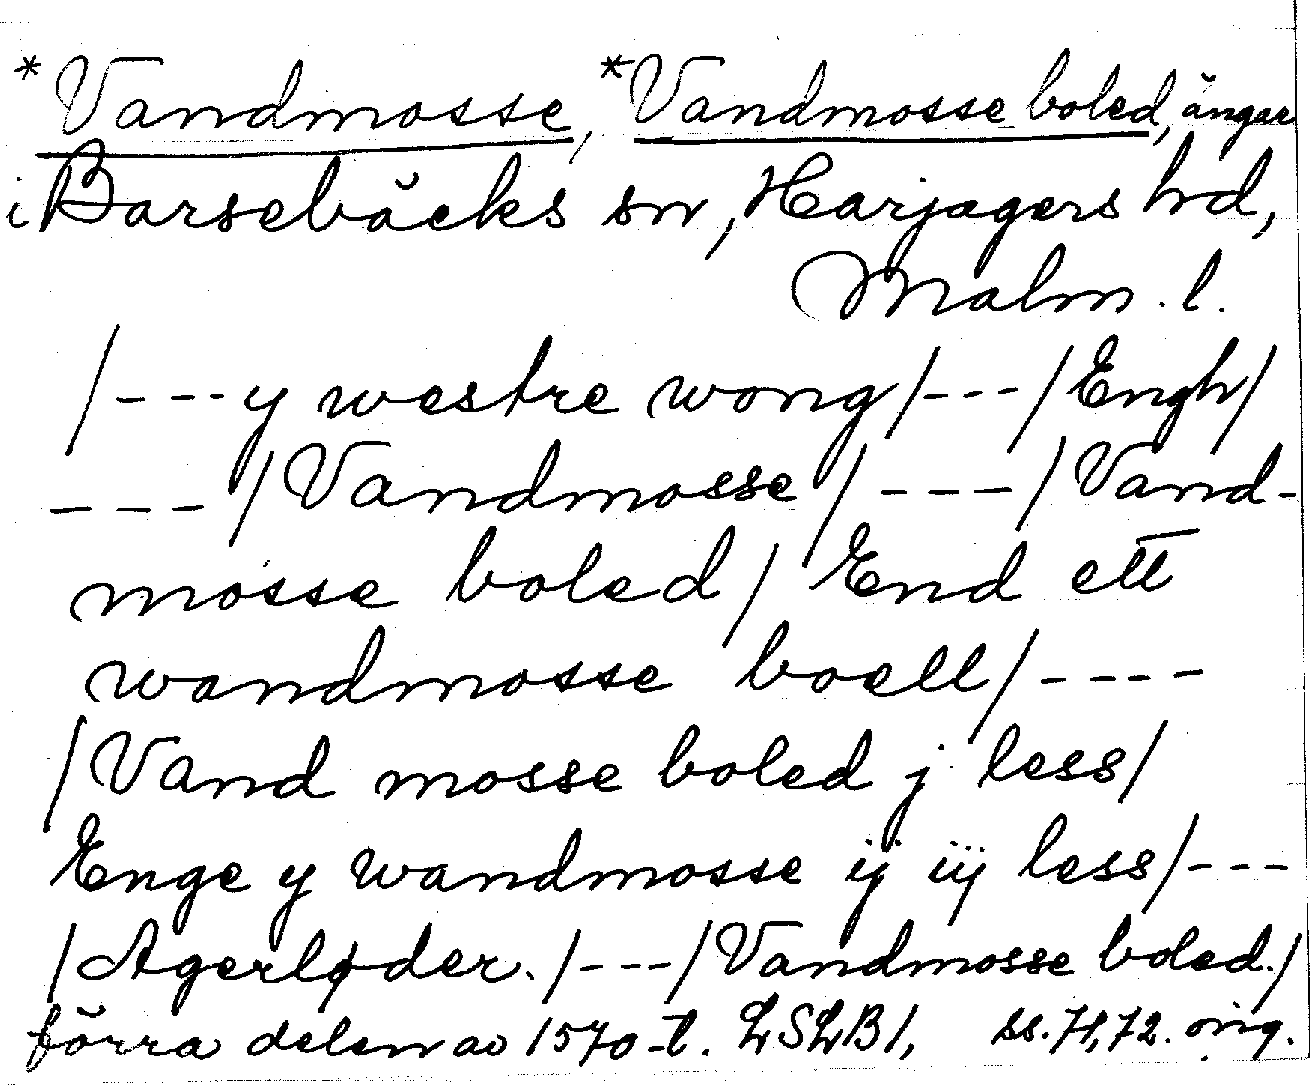 *Vandmosse, *Vandmosse boled, ängar
i Barsebäcks sn, Harjagers hd,
Malm. l.
/---y westre wong/---/Engh/
---/Vandmosse/---/Vand-
mosse boled/ End ett
wandmosse boell/----
/Vand mosse boled j less/
Enge y wandmosse ij iij less/---
/Agerløder./---/Vandmosse boled./
förra delen av 1570-t. LSLB1, ss.71,72. orig.